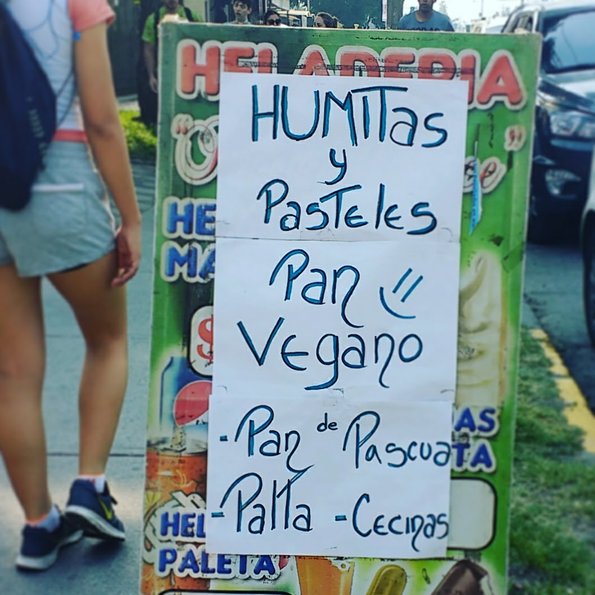 HELADERIA
HUMITas
y
PasTeles
Pan
Vegano
- Pan de Pascua
- Palta - Cecinas
HE
MA
$
AS
TA
HEL
PALETA